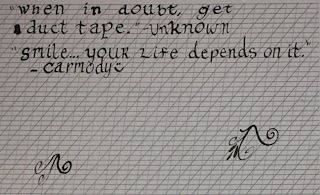 "when in doubt, get
duct tape." -unknown
"smile... your life depends on it."
- carmody